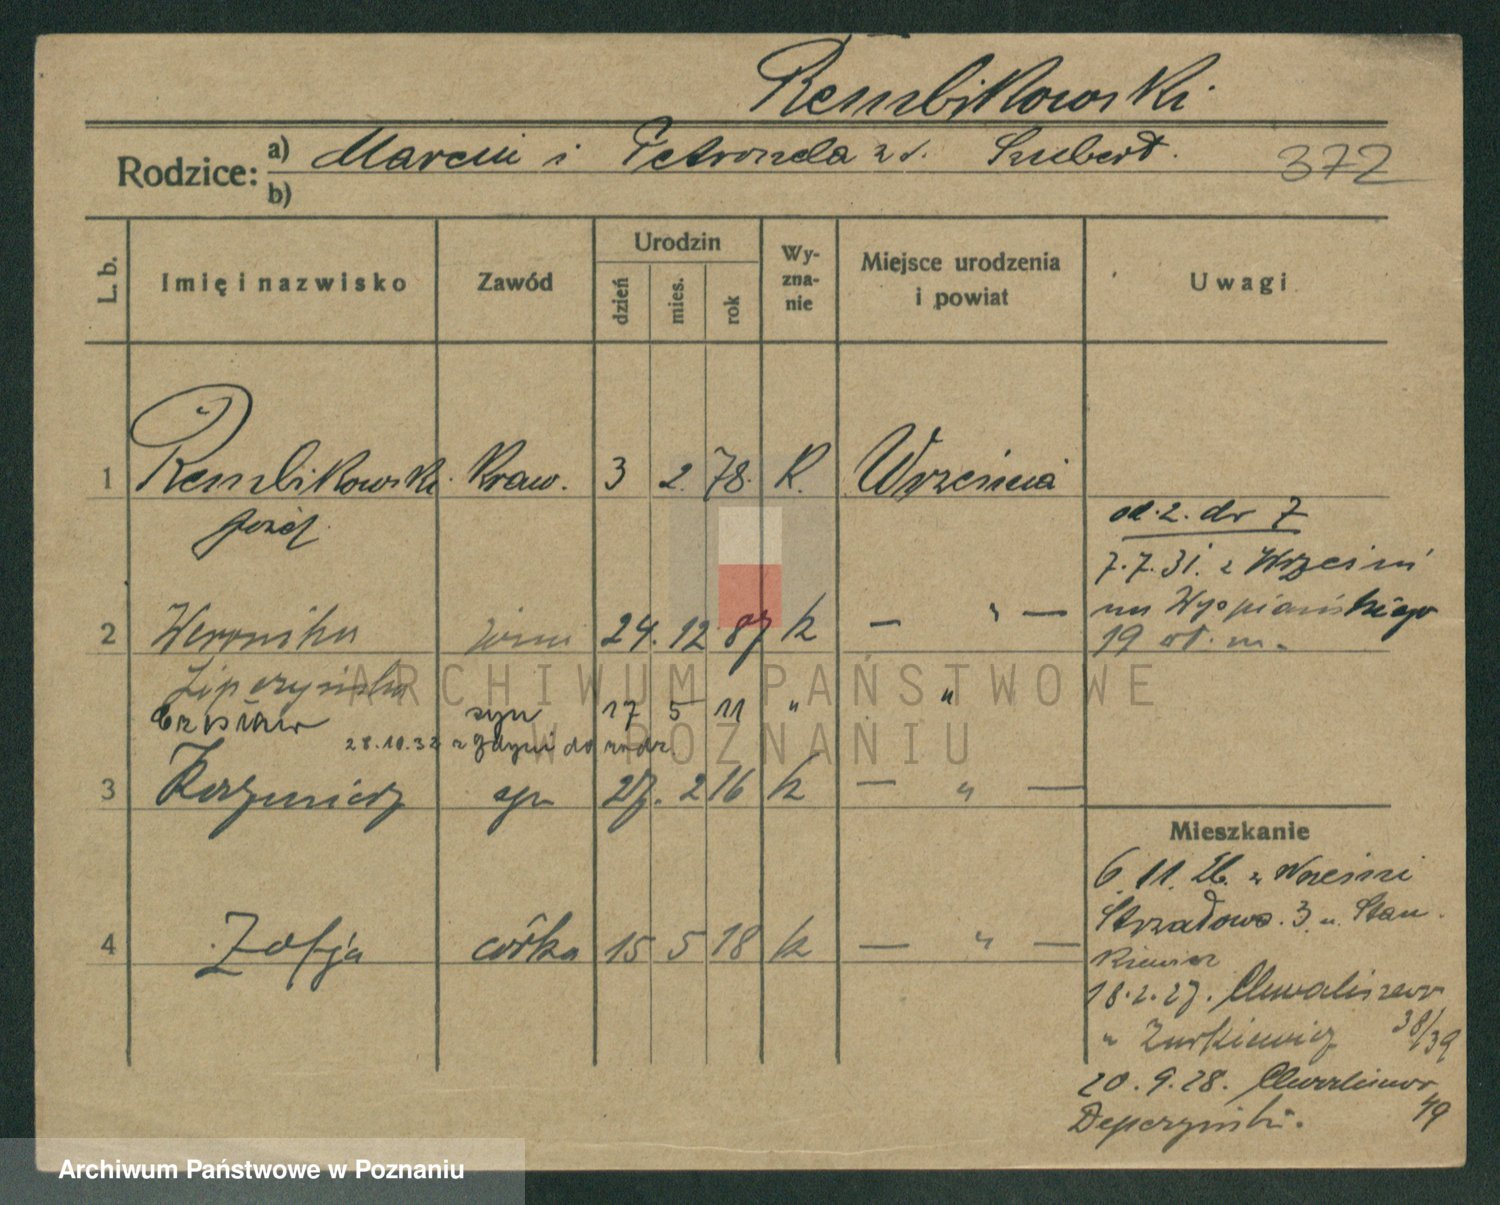 Rembikowski
Rodzice: a) Marcin i Petronela z d. Szubert.
372
b)
L. b.
Imię i nazwisko
Zawód
Urodzin
dzień
mies.
rok
Wy-
zna-
nie
Miejsce urodzenia
i powiat
Uwagi
1 Rembikowski Kraw. 3 2. 78. K. Września
Józef
od 2. do 7
7.7.31. z Wrześni
na Wyspiańskiego
19 m.
2 Weronika żona 24. 12 87 k — " —
Lipczyńska
Czesław syn 17 5 11 " "
28.10.32 z Gdyni do rodz.
3 Kazimierz syn 27. 2 16 k — " —
Mieszkanie
6.11.26. z Wrześni
Strzałowa. 3 u. Stan
4 Zofja córka 15 5 18 k — " —
18.2.27. Chwaliszewo
" Żurkiewicz 38/39
20.9.28. Chwaliszewo
49
ARCHIWUM PAŃSTWOWE
W POZNANIU
Archiwum Państwowe w Poznaniu